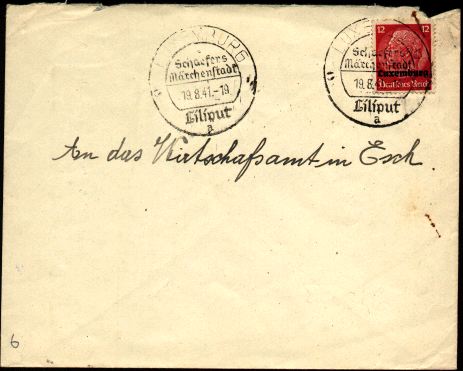 LUXEMBURG
Schaefers
Märchenstadt
19.8.41.-19
Liliput
a
LUX
Schaefers
Märchenstadt
19.8.
Liliput
a
12 12
Luxemburg
Deutsches Reich
An das Wirtschafsamt in Esch.
6